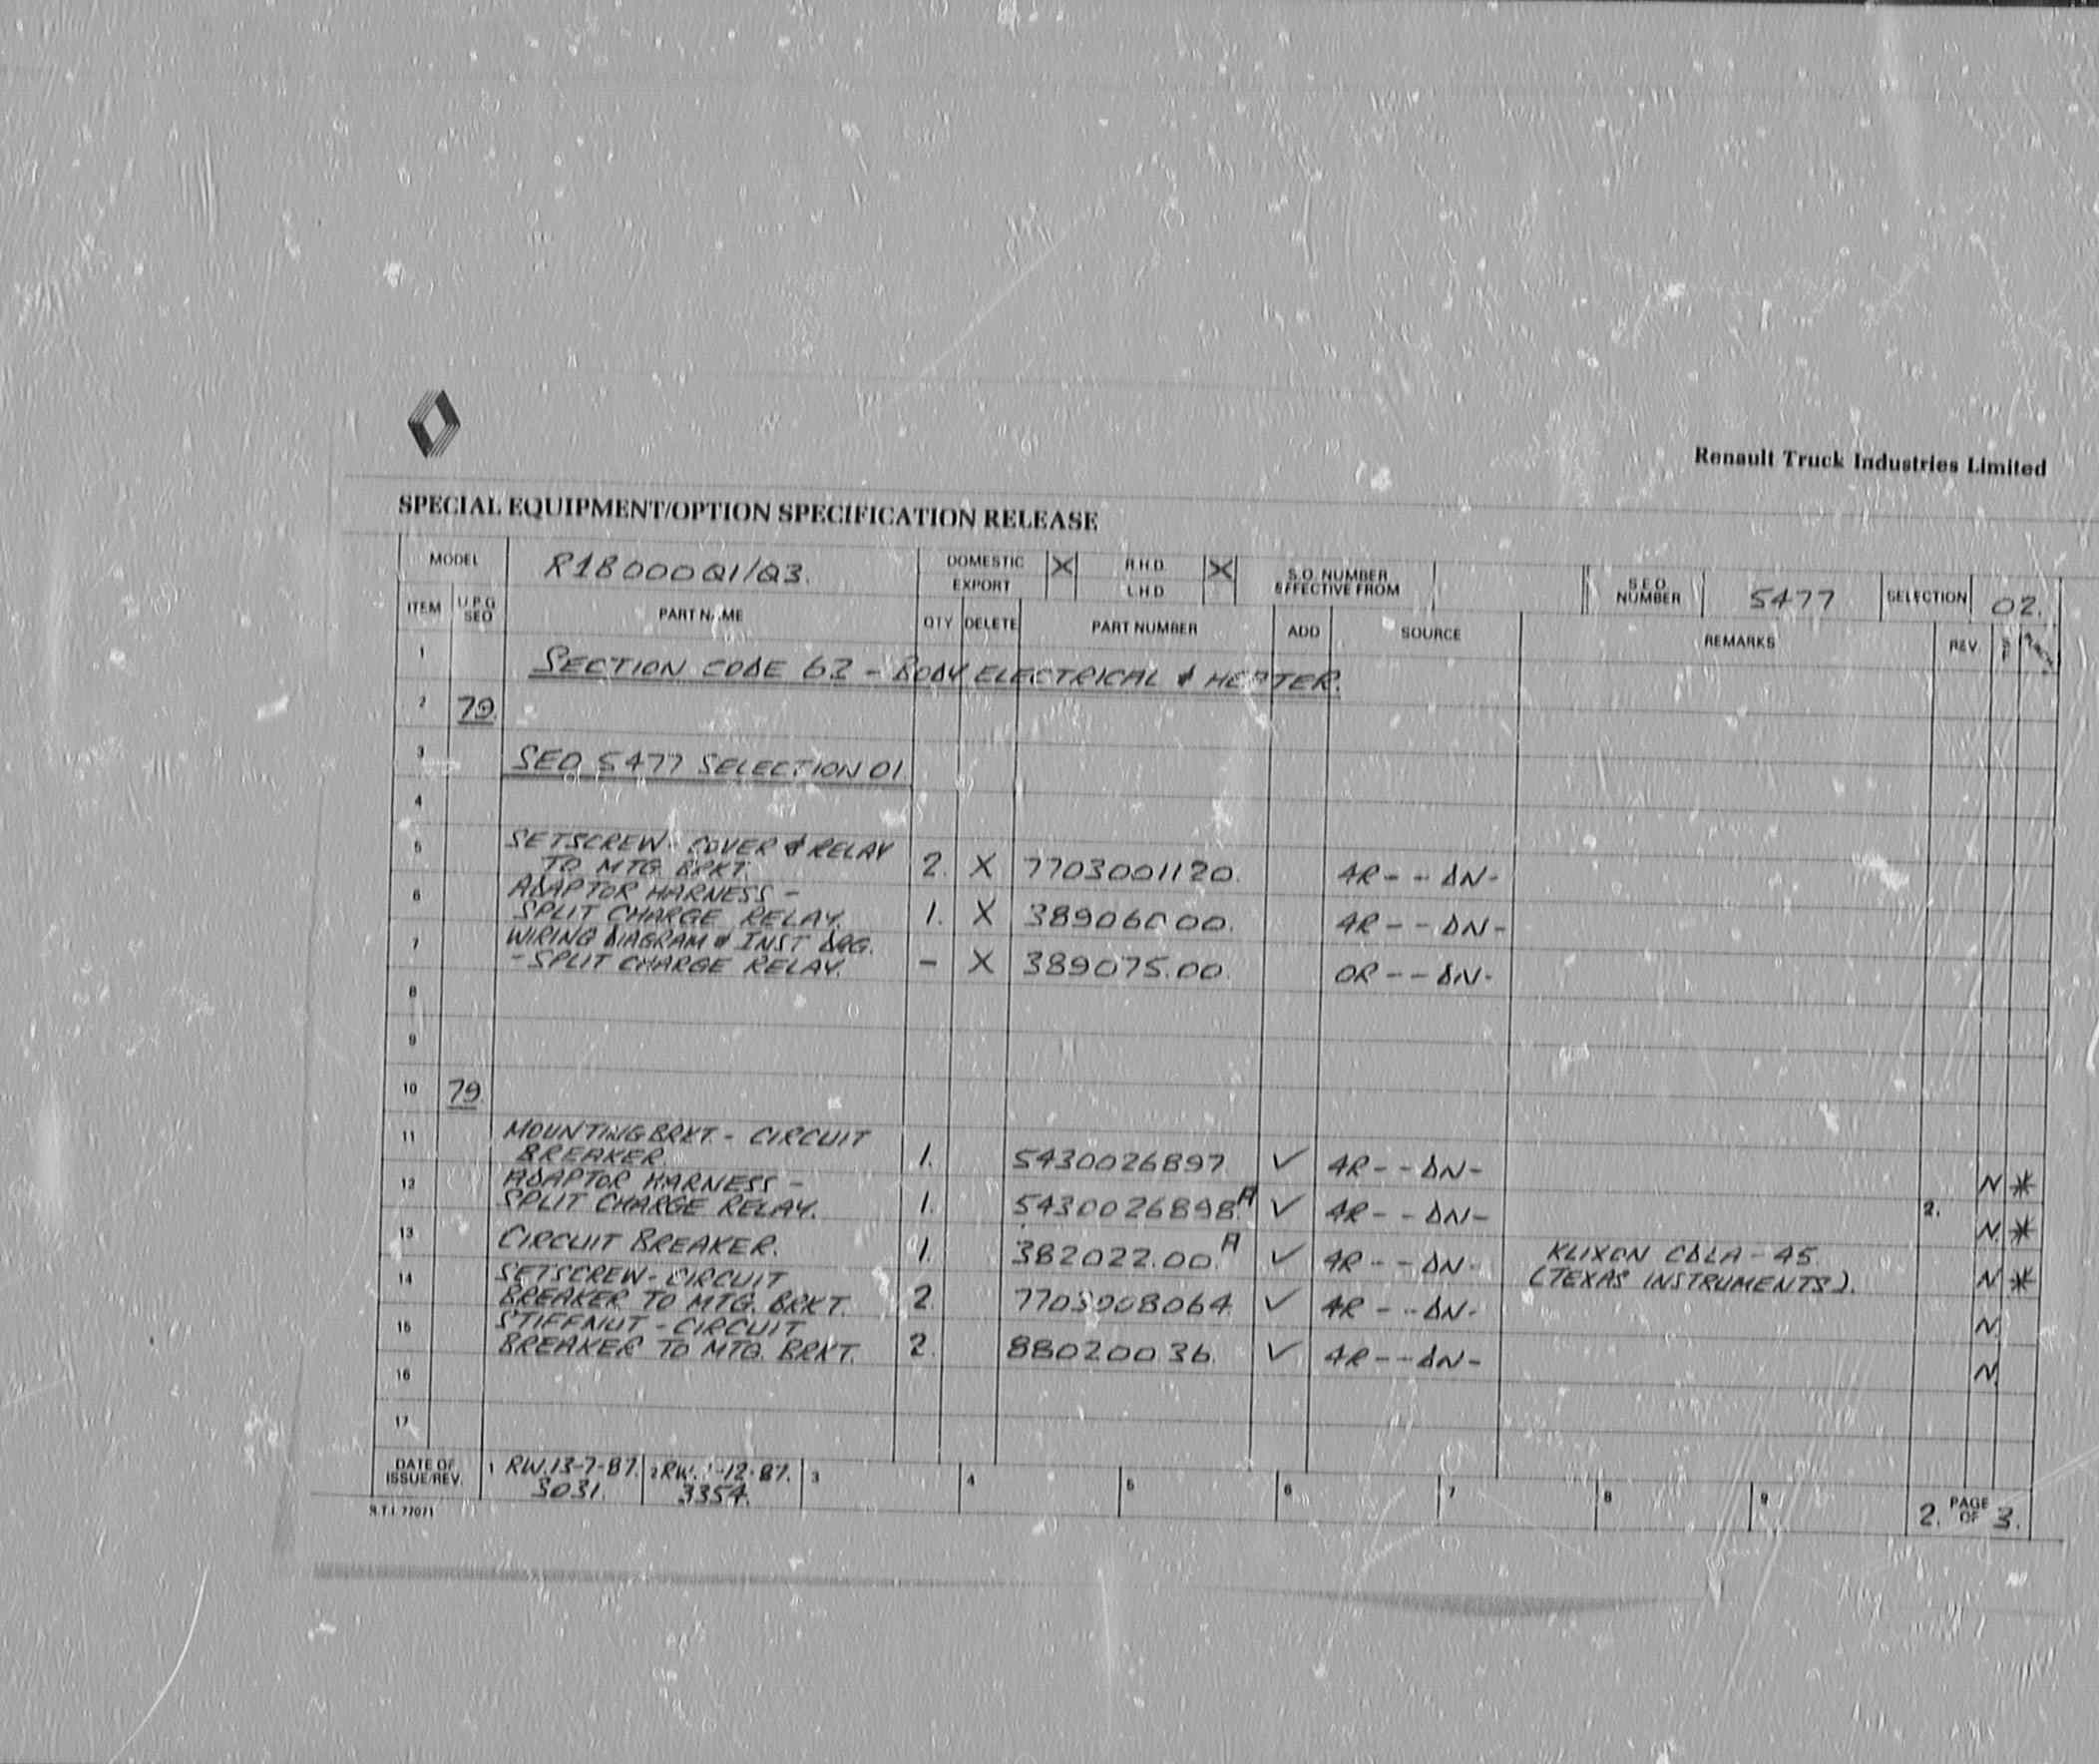 Renault Truck Industries Limited
SPECIAL EQUIPMENT/OPTION SPECIFICATION RELEASE
MODEL R18000Q1/Q3. DOMESTIC X R.H.D. X S.O. NUMBER S.E.O. NUMBER 5477 SELECTION 02.
EXPORT L.H.D. EFFECTIVE FROM
ITEM U.P.G SEQ PART NAME QTY DELETE PART NUMBER ADD SOURCE REMARKS REV
1 SECTION CODE 63 - BODY ELECTRICAL & HEATER.
2 79.
3 SEO 5477 SELECTION 01
4
5 SETSCREW - COVER & RELAY
TO MTG. BRKT. 2. X 7703001120. 4R - - DN -
6 ADAPTOR HARNESS -
SPLIT CHARGE RELAY. 1. X 38906000. 4R - - DN -
7 WIRING DIAGRAM & INST DRG.
- SPLIT CHARGE RELAY. - X 389075.00. OR - - DN -
8
9
10 79.
11 MOUNTING BRKT. - CIRCUIT
BREAKER. 1. 5430026897. ✓ 4R - - DN - N *
12 ADAPTOR HARNESS -
SPLIT CHARGE RELAY. 1. 5430026898.A ✓ 4R - - DN - 2. N *
13 CIRCUIT BREAKER. 1. 382022.00.A ✓ 4R - - DN - KLIXON CDLA - 45
(TEXAS INSTRUMENTS). N *
14 SETSCREW - CIRCUIT
BREAKER TO MTG. BRKT. 2. 7703008064. ✓ 4R - - DN - N
15 STIFFNUT - CIRCUIT
BREAKER TO MTG. BRKT. 2. 88020036. ✓ 4R - - DN - N.
16
17
DATE OF ISSUE/REV. 1 RW. 13-7-87. 2 RW. -12-87. 3 4 5 6 7 8 9
3031. 3354. 2. PAGE OF 3.
R.T.I. 77071